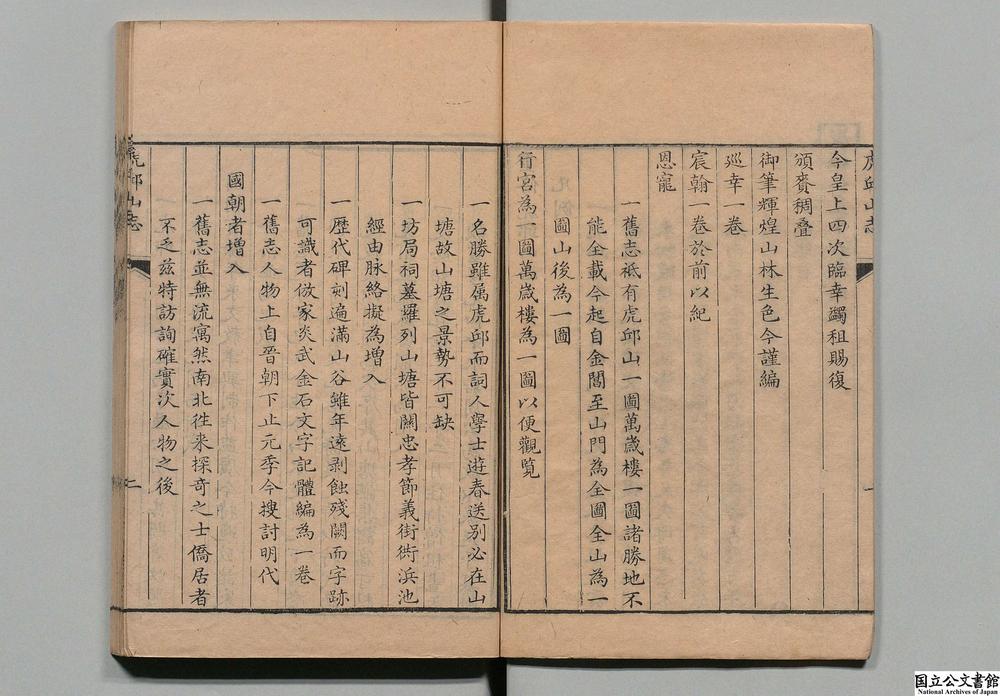 虎邱山志
一
今皇上四次臨幸蠲租賜復
頒賚稠叠
御筆輝煌山林生色今謹編
廵幸一卷
宸翰一卷於前以紀
恩寵
一舊志袛有虎邱山一圖萬歲樓一圖諸勝地不
能全載今起自金閶至山門為全圖全山為一
圖山後為一圖
行宮為一圖萬歲樓為一圖以便觀覧
一名勝雖属虎邱而詞人學士遊春送別必在山
塘故山塘之景勢不可缺
一坊局祠墓羅列山塘皆關忠孝節義街衖浜池
經由脉絡擬為增入
一歴代碑刻遍滿山谷雖年遠剥蝕殘闕而字跡
可識者倣家炎武金石文字記體編為一卷
一舊志人物上自晉朝下止元季今搜討明代
國朝者增入
一舊志並無流寓然南北徃来探奇之士僑居者
不乏兹特訪詢確實次人物之後
虎邱山志
二
国立公文書館
National Archives of Japan